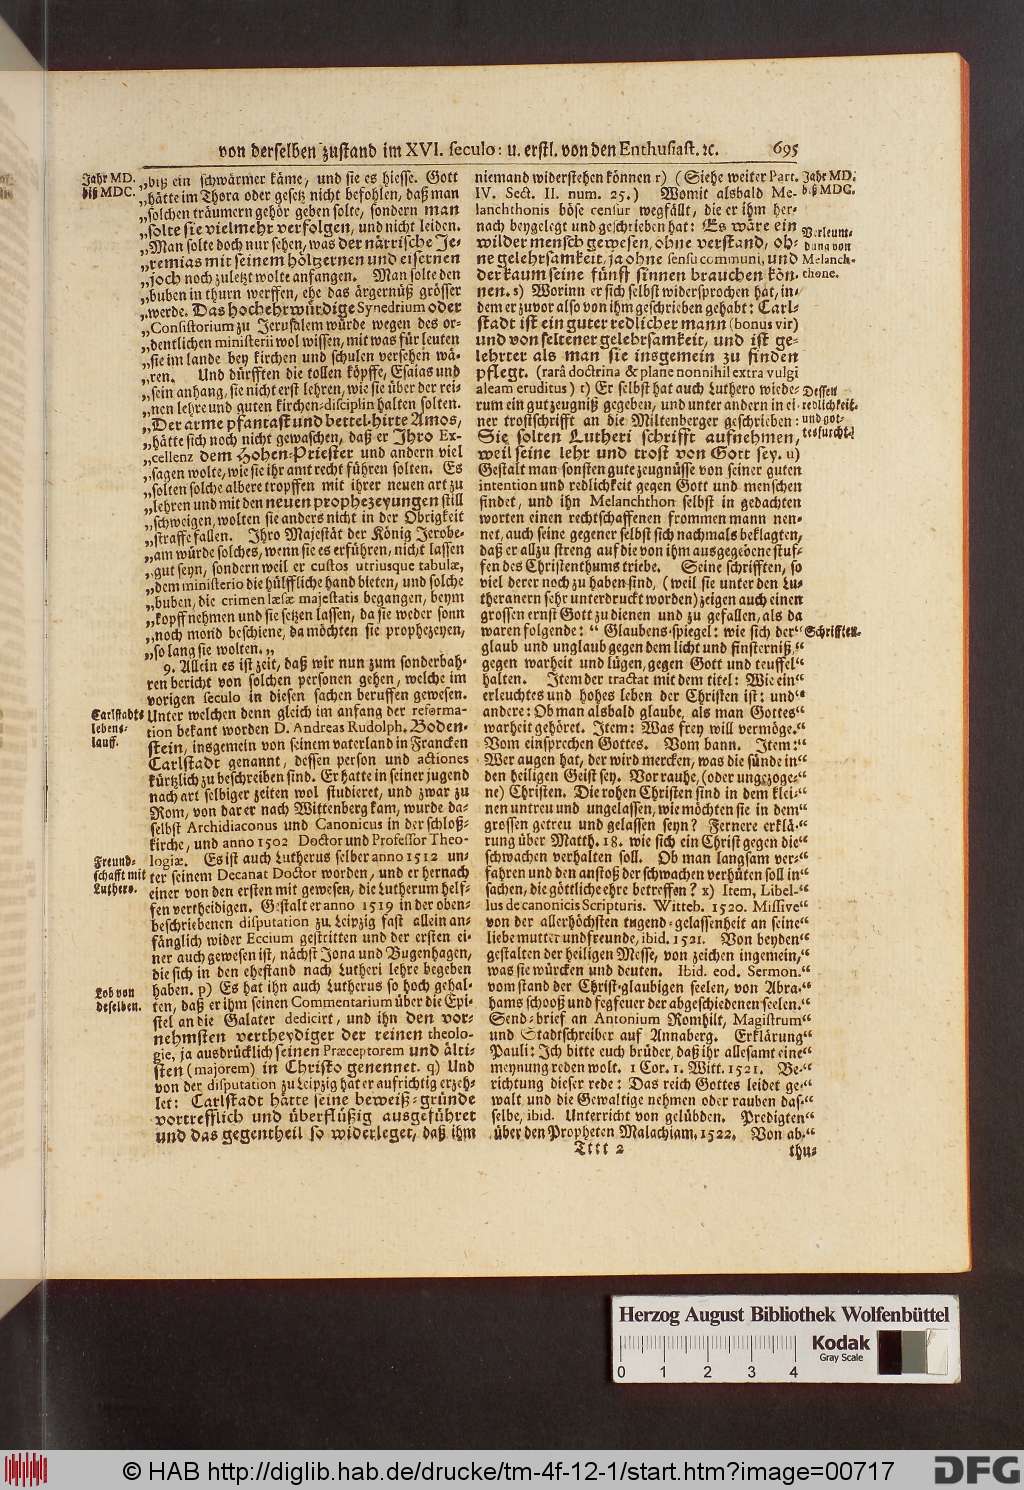 von derselben zustand im XVI. seculo: u. erstl. von den Enthusiast. ꝛc. 695
Jahr MD.
biß MDC.
„biß ein schwärmer käme, und sie es hiesse. Gott
„hätte im Thora oder gesetz nicht befohlen, daß man
„solchen träumern gehör geben solte, sondern man
„solte sie vielmehr verfolgen, und nicht leiden.
„Man solte doch nur sehen, was der närrische Je-
„remias mit seinem höltzernen und eisernen
„joch noch zuletzt wolte anfangen. Man solte den
„buben in thurn werffen, ehe das ärgernüß grösser
„werde. Das hochehrwürdige Synedrium oder
„Consistorium zu Jerusalem würde wegen des or-
„dentlichen ministerii wol wissen, mit was für leuten
„sie im lande bey kirchen und schulen versehen wä-
„ren. Und dürfften die tollen köpffe, Esaias und
„sein anhang, sie nicht erst lehren, wie sie über der rei-
„nen lehre und guten kirchen-disciplin halten solten.
„Der arme phantast und bettel-hirte Amos,
„hätte sich noch nicht gewaschen, daß er Ihro Ex-
„cellenz dem Hohen-Priester und andern viel
„sagen wolte, wie sie ihr amt recht führen solten. Es
„solten solche albere tropffen mit ihrer neuen art zu
„lehren und mit den neuen prophezeyungen still
„schweigen, wolten sie anders nicht in der Obrigkeit
„straffe fallen. Ihro Majestät der König Jerobe-
„am würde solches, wenn sie es erführen, nicht lassen
„gut seyn, sondern weil er custos utriusque tabulæ,
„dem ministerio die hülffliche hand bieten, und solche
„buben, die crimen læsæ majestatis begangen, beym
„kopff nehmen und sie setzen lassen, da sie weder sonn
„noch mond beschiene, da möchten sie prophezeyen,
„so lang sie wolten.„
9. Allein es ist zeit, daß wir nun zum sonderbah-
ren bericht von solchen personen gehen, welche im
vorigen seculo in diesen sachen beruffen gewesen.
Carlstadts
lebens-
lauff.
Unter welchen denn gleich im anfang der reforma-
tion bekant worden D. Andreas Rudolph. Boden-
stein, insgemein von seinem vaterland in Francken
Carlstadt genannt, dessen person und actiones
kürtzlich zu beschreiben sind. Er hatte in seiner jugend
nach art selbiger zeiten wol studieret, und zwar zu
Rom, von dar er nach Wittenberg kam, wurde da-
selbst Archidiaconus und Canonicus in der schloß-
kirche, und anno 1502 Doctor und Professor Theo-
Freund-
schafft mit
Luthero.
logiæ. Es ist auch Lutherus selber anno 1512 un-
ter seinem Decanat Doctor worden, und er hernach
einer von den ersten mit gewesen, die Lutherum helf-
fen vertheidigen. Gestalt er anno 1519 in der oben-
beschriebenen disputation zu Leipzig fast allein an-
fänglich wider Eccium gestritten und der ersten ei-
ner auch gewesen ist, nächst Jona und Bugenhagen,
die sich in den ehestand nach Lutheri lehre begeben
Lob von
deselben.
haben. p) Es hat ihn auch Lutherus so hoch gehal-
ten, daß er ihm seinen Commentarium über die Epi-
stel an die Galater dedicirt, und ihn den vor-
nehmsten vertheydiger der reinen theolo-
gie, ja ausdrücklich seinen Præceptorem und älti-
sten (majorem) in Christo genennet. q) Und
von der disputation zu Leipzig hat er aufrichtig erzeh-
let: Carlstadt hätte seine beweiß-gründe
vortrefflich und überflüßig ausgeführet
und das gegentheil so widerleget, daß ihm
niemand widerstehen können r) (Siehe weiter Part.
IV. Sect. II. num. 25.) Womit alsbald Me-
lanchthonis böse censur wegfällt, die er ihm her-
nach beygelegt und geschrieben hat: Es wäre ein
wilder mensch gewesen, ohne verstand, oh-
ne gelehrsamkeit, ja ohne sensu communi, und
der kaum seine fünff sinnen brauchen kön-
nen. s) Worinn er sich selbst widersprochen hat, in-
dem er zuvor also von ihm geschrieben gehabt: Carl-
stadt ist ein guter redlicher mann (bonus vir)
und von seltener gelehrsamkeit, und ist ge-
lehrter als man sie insgemein zu finden
pflegt. (rarâ doctrina & plane nonnihil extra vulgi
aleam eruditus) t) Er selbst hat auch Luthero wiede-
rum ein gut zeugniß gegeben, und unter andern in ei-
ner trostschrifft an die Miltenberger geschrieben:
Sie solten Lutheri schrifft aufnehmen,
weil seine lehr und trost von Gott sey. u)
Gestalt man sonsten gute zeugnüsse von seiner guten
intention und redlichkeit gegen Gott und menschen
findet, und ihn Melanchthon selbst in gedachten
worten einen rechtschaffenen frommen mann nen-
net, auch seine gegener selbst sich nachmals beklagten,
daß er allzu streng auf die von ihm ausgegebene stuf-
fen des Christenthums triebe. Seine schrifften, so
viel derer noch zu haben sind, (weil sie unter den Lu-
theranern sehr unterdruckt worden) zeigen auch einen
grossen ernst Gott zu dienen und zu gefallen, als da
waren folgende: “ Glaubens-spiegel: wie sich der“
glaub und unglaub gegen dem licht und finsterniß,“
gegen warheit und lügen, gegen Gott und teuffel“
halten. Item der tractat mit dem titel: Wie ein“
erleuchtes und hohes leben der Christen ist: und“
andere: Ob man alsbald glaube, als man Gottes“
warheit gehöret. Item: Was frey will vermöge.“
Vom einsprechen Gottes. Vom bann. Item:“
Wer augen hat, der wird mercken, was die sünde in“
den heiligen Geist sey. Vor rauhe, (oder ungezoge-“
ne) Christen. Die rohen Christen sind in dem klei-“
nen untreu und ungelassen, wie möchten sie in dem“
grossen getreu und gelassen seyn? Fernere erklä-“
rung über Matth. 18. wie sich ein Christ gegen die“
schwachen verhalten soll. Ob man langsam ver-“
fahren und den anstoß der schwachen verhüten soll in“
sachen, die göttliche ehre betreffen? x) Item, Libel-“
lus de canonicis Scripturis. Witteb. 1520. Missive“
von der allerhöchsten tugend-gelassenheit an seine“
liebe mutter und freunde, ibid. 1521. Von beyden“
gestalten der heiligen Messe, von zeichen ingemein,“
was sie würcken und deuten. Ibid. eod. Sermon.“
vom stand der Christ-glaubigen seelen, von Abra-“
hams schooß und fegfeuer der abgeschiedenen seelen.“
Send-brief an Antonium Romhilt, Magistrum“
und Stadtschreiber auf Annaberg. Erklärung“
Pauli: Ich bitte euch brüder, daß ihr allesamt eine“
meynung reden wolt. 1 Cor. 1. Witt. 1521. Be-“
richtung dieser rede: Das reich Gottes leidet ge-“
walt und die Gewaltige nehmen oder rauben das-“
selbe, ibid. Unterricht von gelübden. Predigten“
über den Propheten Malachiam. 1522. Von ab-“
Jahr MD.
biß MDC.
Verleum-
dung von
Melanch-
thone.
Dessen
redlichkeit
und got-
tesfurcht.
Schrifften.
Tttt 2
thu-
Herzog August Bibliothek Wolfenbüttel
Kodak
Gray Scale
0 1 2 3 4
© HAB http://diglib.hab.de/drucke/tm-4f-12-1/start.htm?image=00717
DFG